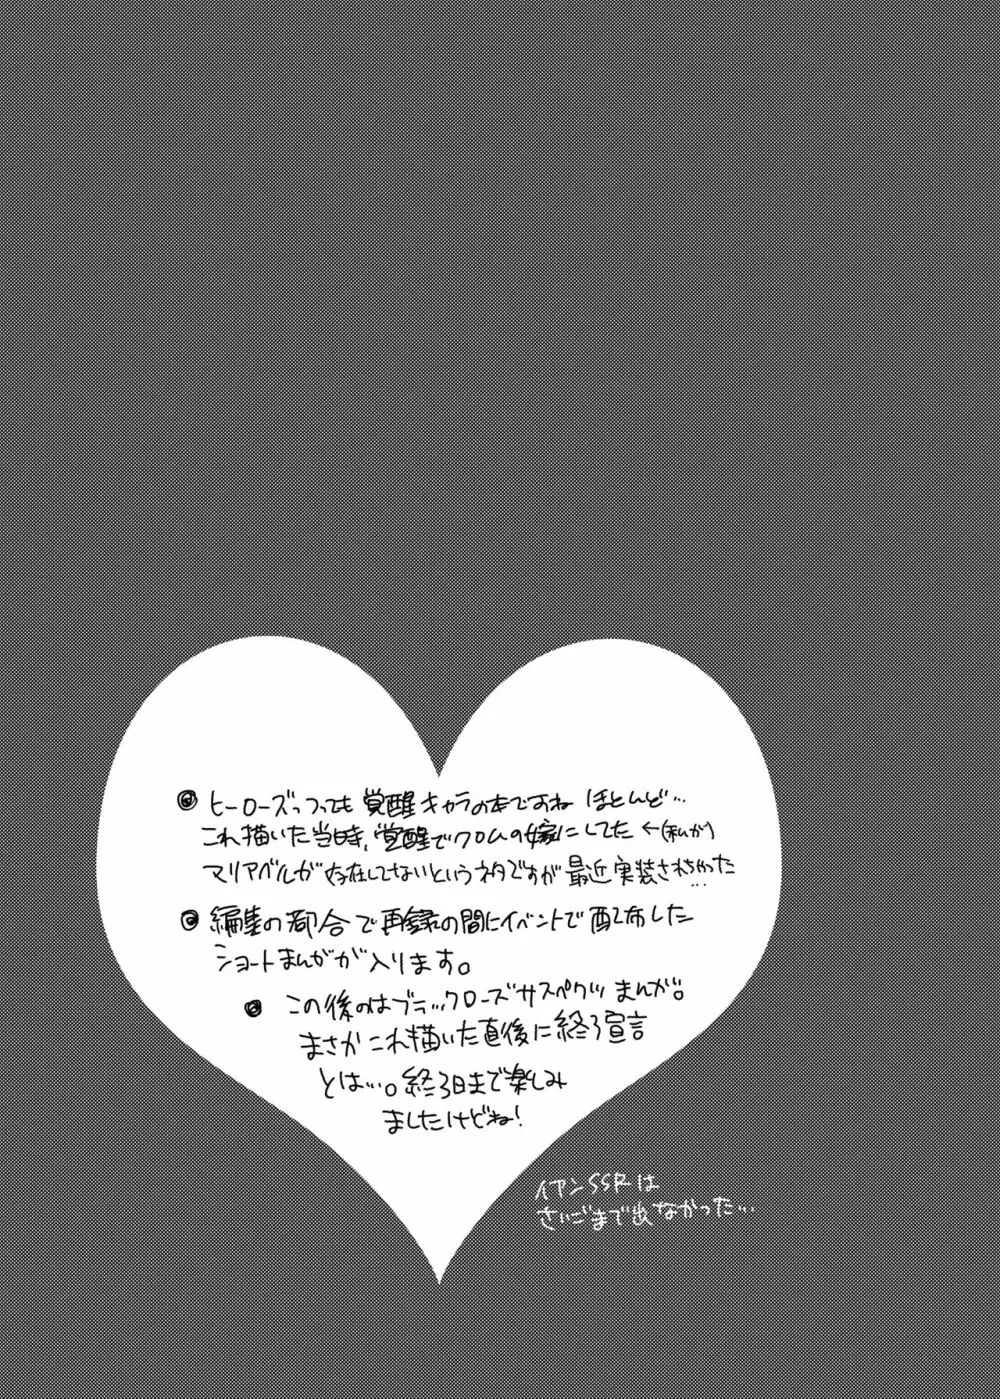 ◎ヒーローズっつっても覚醒キャラの本ですね ほとんど…
これ描いた当時、覚醒でクロムの嫁にしてた ←(私が)
マリアベルが存在してないというネタですが最近実装されちゃった…
◎編集の都合で再録の間にイベントで配布した
ショートまんがが入ります。
◎この後のはブラックローズサスペクツまんが。
まさかこれ描いた直後に終了宣言
とは…。終了日まで楽しみ
ましたけどね!
イアンSSRは
さいごまで出なかった…